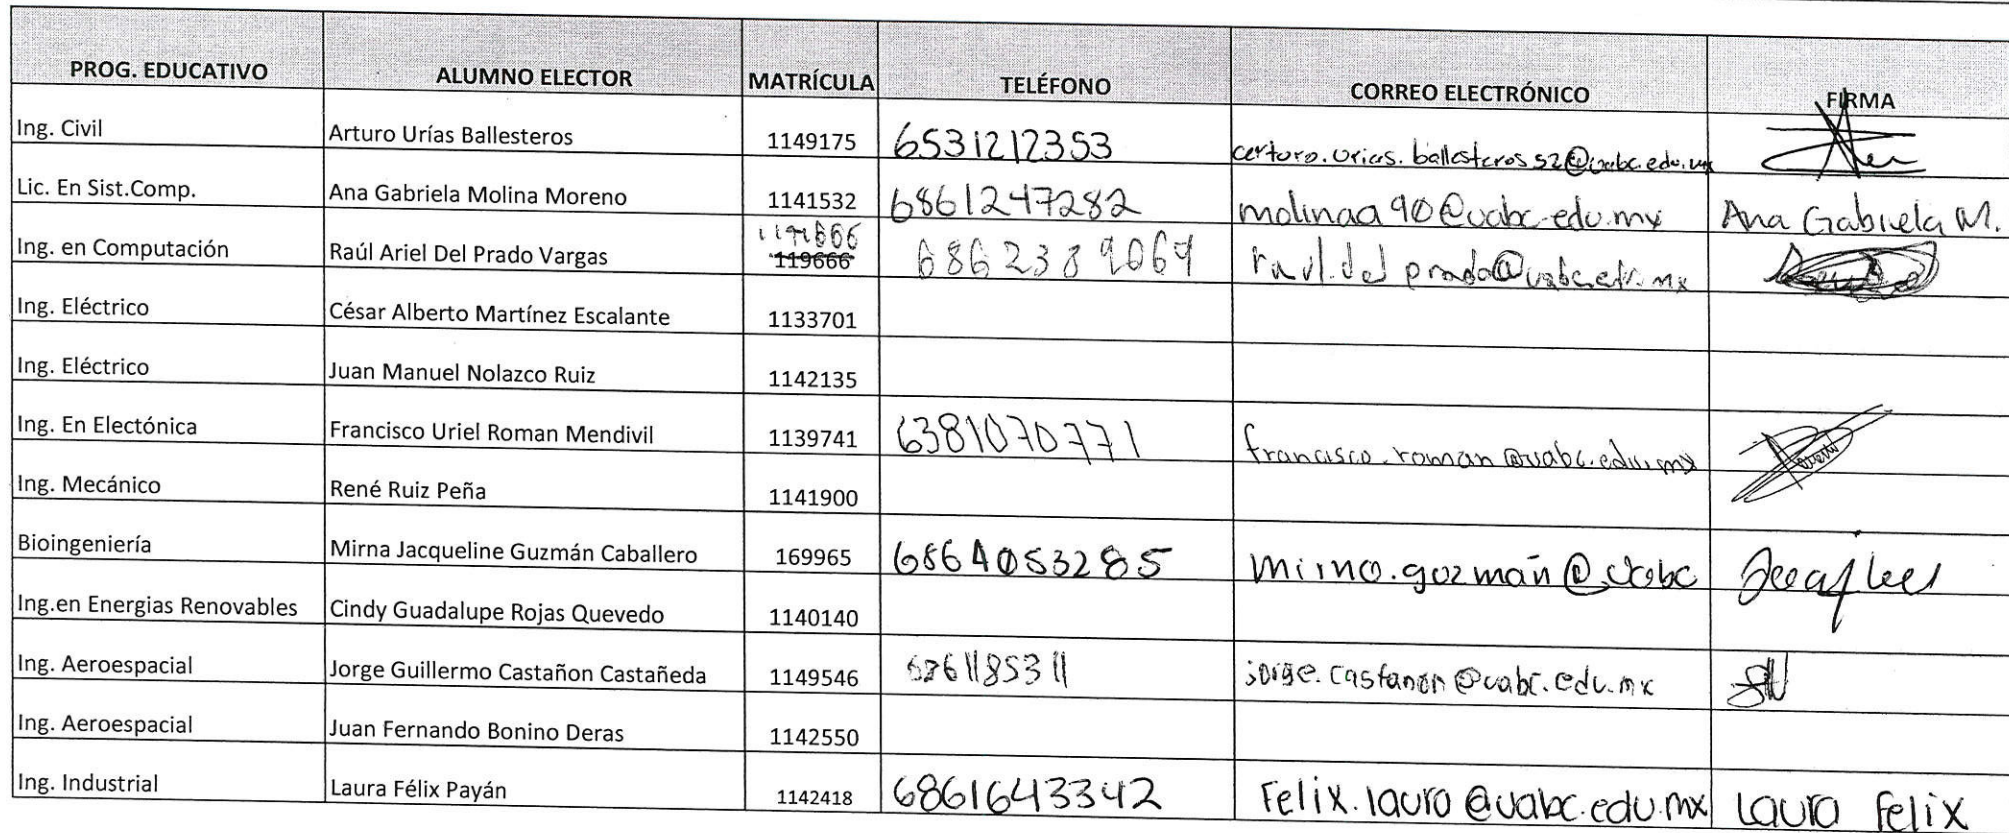 PROG. EDUCATIVO ALUMNO ELECTOR MATRÍCULA TELÉFONO CORREO ELECTRÓNICO FIRMA
Ing. Civil Arturo Urías Ballesteros 1149175 6531212353 arturo.urias.ballesteros52@uabc.edu.mx
Lic. En Sist.Comp. Ana Gabriela Molina Moreno 1141532 6861247282 molinaa90@uabc.edu.mx Ana Gabriela M.
Ing. en Computación Raúl Ariel Del Prado Vargas 119666 6862389069
Ing. Eléctrico César Alberto Martínez Escalante 1133701
Ing. Eléctrico Juan Manuel Nolazco Ruiz 1142135
Ing. En Electónica Francisco Uriel Roman Mendivil 1139741 6381070771 francisco.roman@uabc.edu.mx
Ing. Mecánico René Ruiz Peña 1141900
Bioingeniería Mirna Jacqueline Guzmán Caballero 169965 6864053285 mirna.guzman@uabc
Ing.en Energias Renovables Cindy Guadalupe Rojas Quevedo 1140140
Ing. Aeroespacial Jorge Guillermo Castañon Castañeda 1149546 6861185311 jorge.castanon@uabc.edu.mx
Ing. Aeroespacial Juan Fernando Bonino Deras 1142550
Ing. Industrial Laura Félix Payán 1142418 6861643342 Felix.laura@uabc.edu.mx Laura Felix